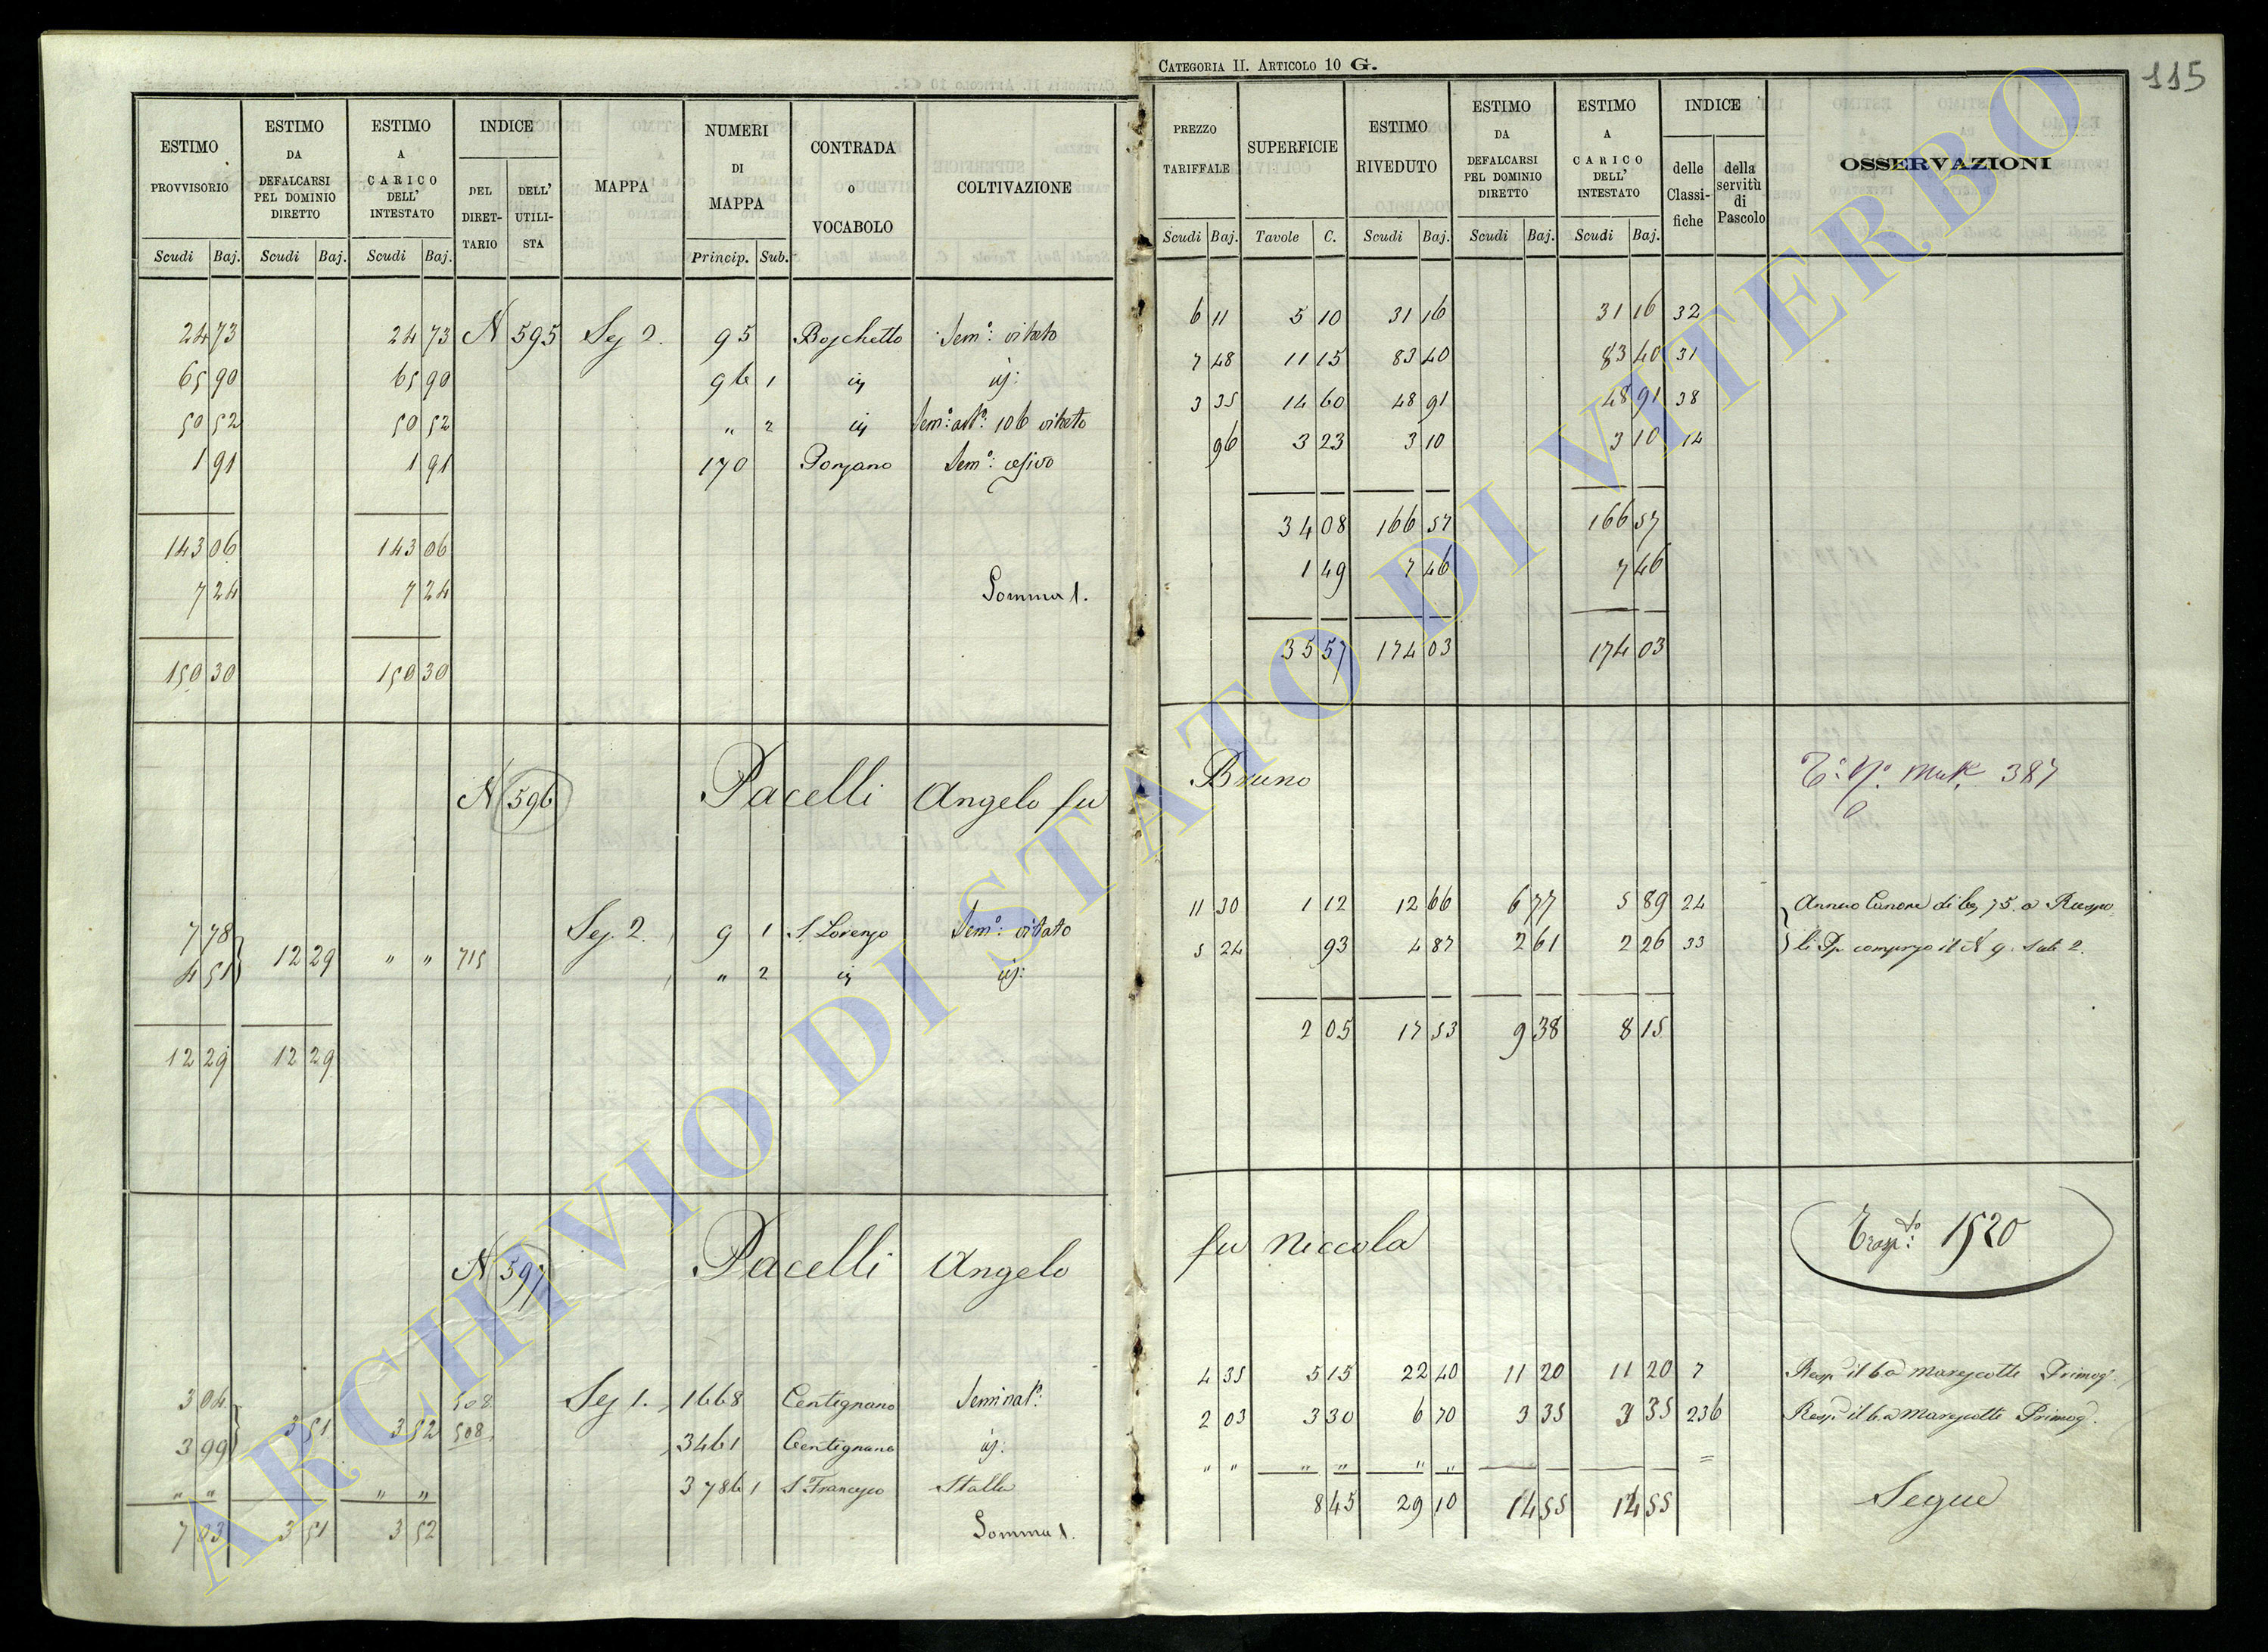 CATEGORIA II. ARTICOLO 10 G.
115
ESTIMO PROVVISORIO
ESTIMO DA DEFALCARSI PEL DOMINIO DIRETTO
ESTIMO A CARICO DELL' INTESTATO
INDICE
DEL DIRET-TARIO
DELL' UTILI-STA
MAPPA
NUMERI DI MAPPA
CONTRADA O VOCABOLO
COLTIVAZIONE
PREZZO TARIFFALE
SUPERFICIE
ESTIMO RIVEDUTO
ESTIMO DA DEFALCARSI PEL DOMINIO DIRETTO
ESTIMO A CARICO DELL' INTESTATO
INDICE
delle Classi-fiche
della servitù di Pascolo
OSSERVAZIONI
Scudi Baj. Scudi Baj. Scudi Baj. Princip. Sub. Scudi Baj. Tavole C. Scudi Baj. Scudi Baj. Scudi Baj.
24 73 24 73 N 595 Sez 2. 95 Boschetto Sem.º: vitato 6 11 5 10 31 16 31 16 32
65 90 65 90 96 1 id: 7 48 11 15 83 40 83 40 31
50 52 50 52 " 2 106 vitato 3 35 14 60 48 91 48 91 38
1 91 1 91 170 Ponzano Sem.º: cesivo 96 3 23 3 10 3 10 14
143 06 143 06 34 08 166 57 166 57
7 24 7 24 Somma 1. 1 49 7 46 7 46
150 30 150 30 35 57 174 03 174 03
N 596 Pacelli Angelo fu Bruno 387
7 78 12 29 " " 715 Sez. 2. 9 1 S. Lorenzo Sem.º: vitato 11 30 1 12 12 66 6 77 5 89 24 Annuo Canone di 75. a Ruspo
4 51 " 2 id: 5 24 93 4 87 2 61 2 26 33 li compreso il N 9. Sub 2.
12 29 12 29 2 05 17 53 9 38 8 15
N 597 Pacelli Angelo fu Niccola Trasp.to: 1520
3 04 3 51 3 52 508 Sez 1. 1668 Centignano Seminat.º: 4 35 5 15 22 40 11 20 11 20 7 Resp il 6.a Marescotti Primog.
3 99 508 3461 Centignano id: 2 03 3 30 6 70 3 35 3 35 236 Resp il 6.a Marescotti Primog.
" " " " 3786 1 S Francesco Stalla " " " " " " =
7 03 3 51 3 52 Somma 1. 8 45 29 10 14 55 14 55 Segue
ARCHIVIO DI STATO DI VITERBO